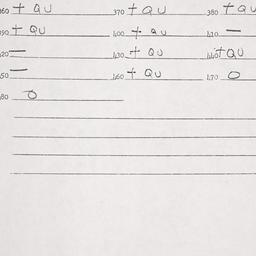 360 + QU 370 + QU 380 + QU
390 + QU 400 + QU 410 —
420 — 430 + QU 440 + QU
450 — 460 + QU 470 O
480 O